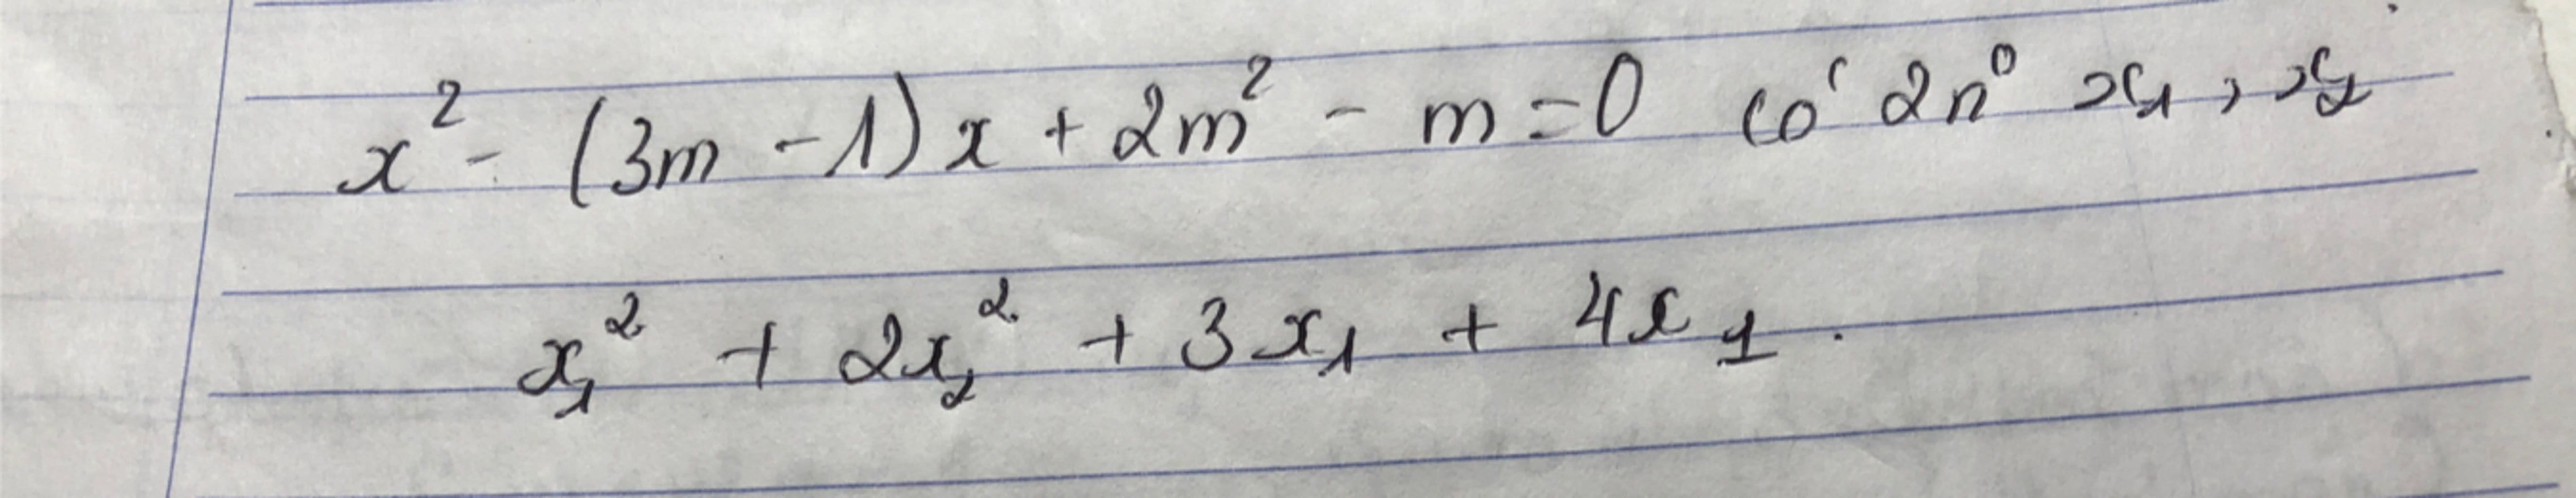 x² - (3m - 1)x + 2m² - m = 0 có 2n⁰ x₁, x₂
x₁² + 2x₂² + 3x₁ + 4x₁.